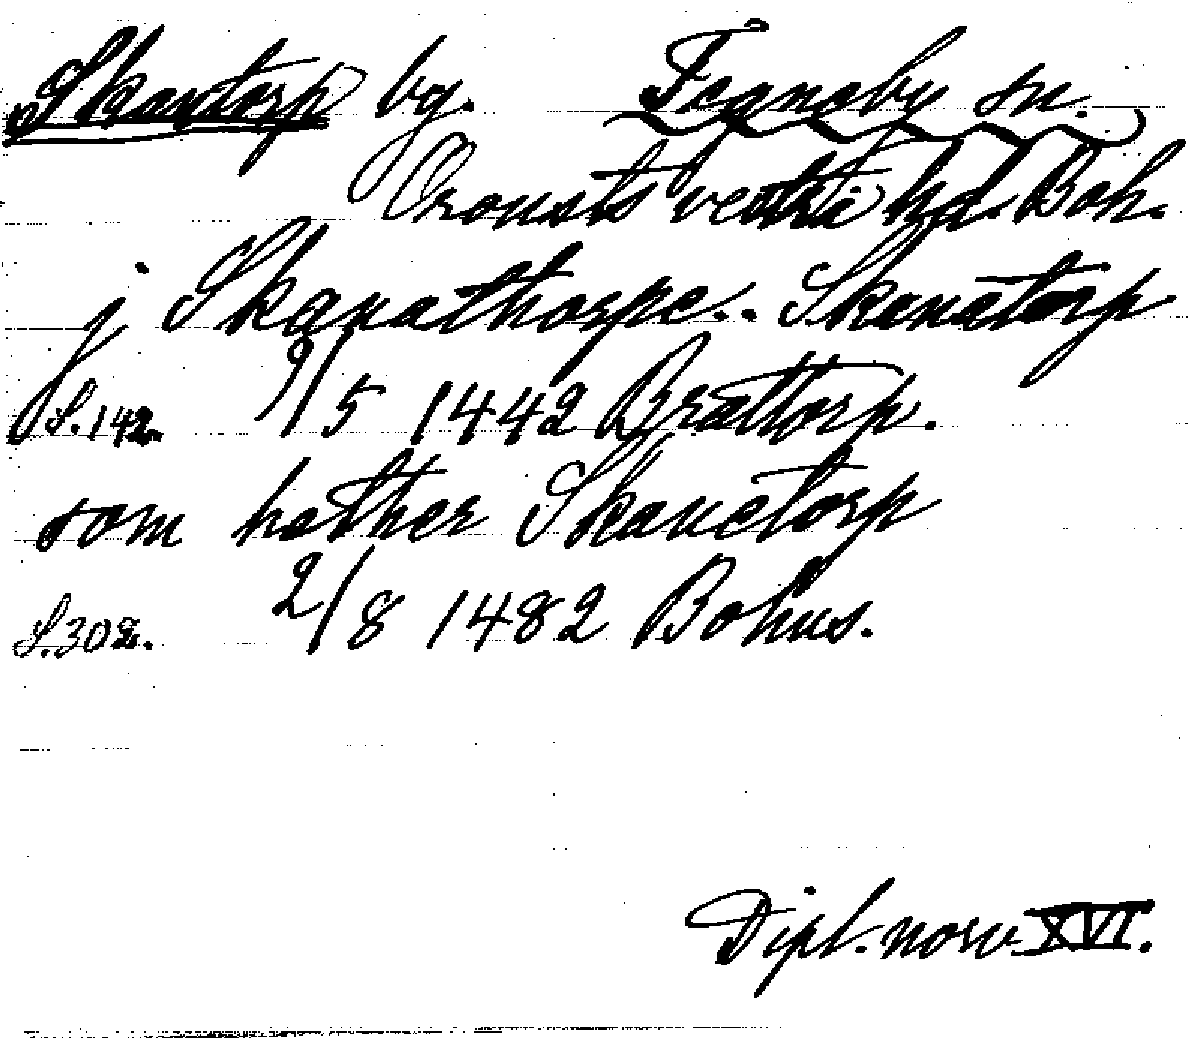 Skantorp by. Tegneby sn.
Orousts västra hd. Boh.
j Skanathorpe.. Skanetorp
S. 142. 9/5 1442 Brattorp.
som hether Skanetorp
S. 302. 2/8 1482 Bohus.
Dipl. norv XVI.